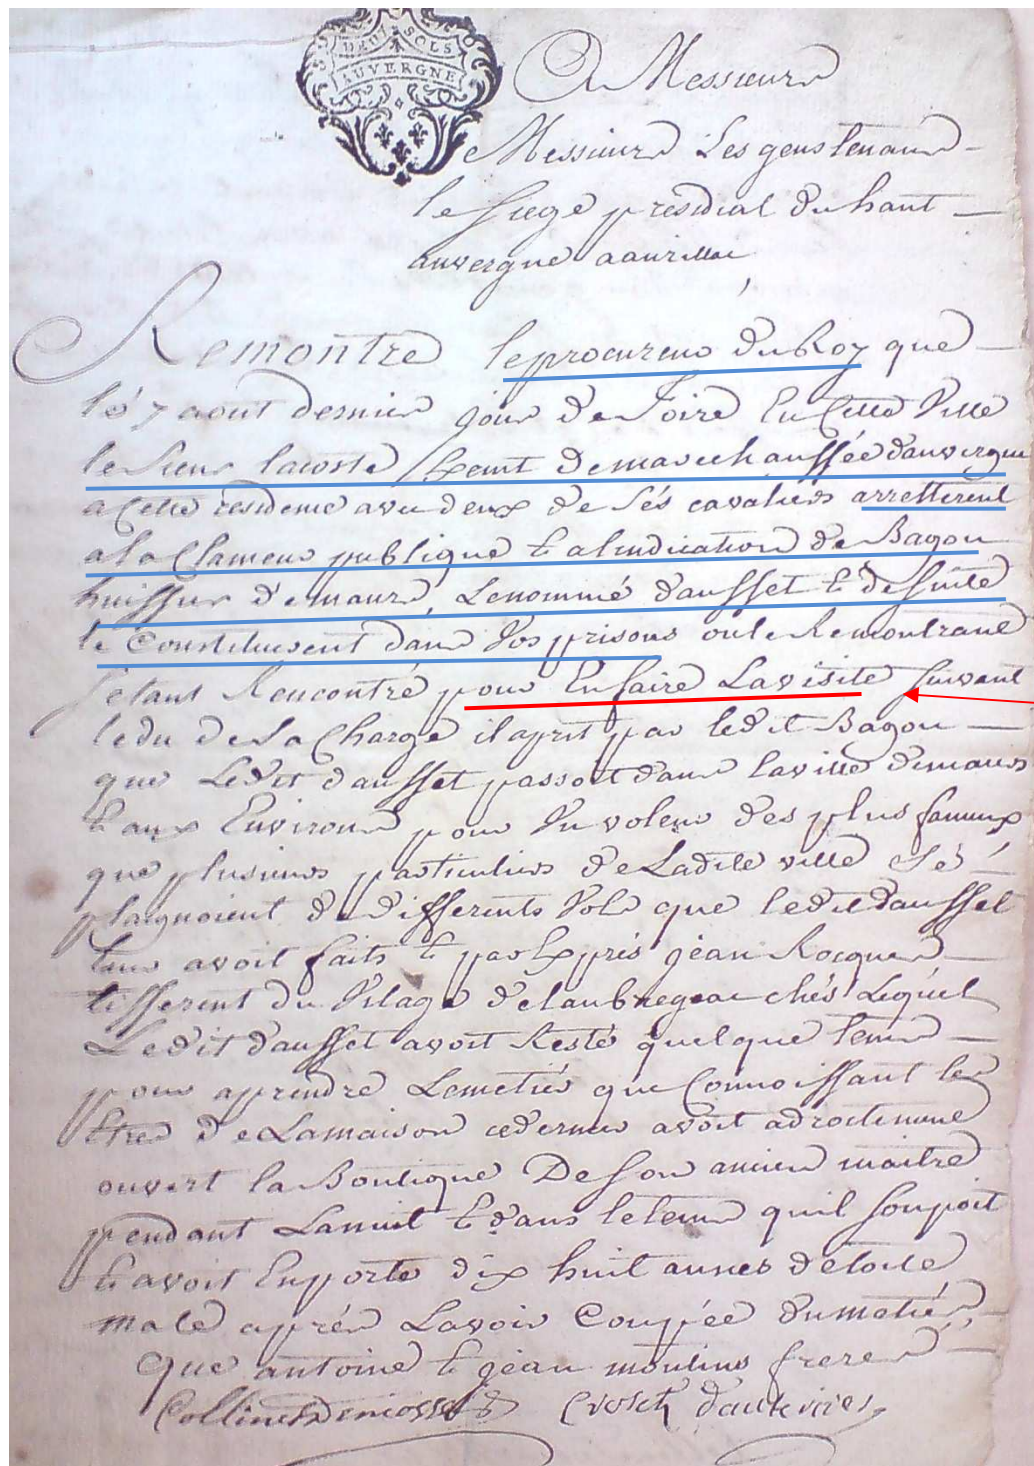 DEUX SOLS
AUVERGNE
A Messieurs
Messieurs Les gens tenans
le siege présidial du haut
auvergne a aurillac
Remontre le procureur du Roy que
le 7 aout dernier jour de foire En Cette Ville
le sieur lacoste Exemt de marechaussée dauvergne
a Cette residence avec deux de sés cavaliers arretterent
a la Clameur publique & a lindication de Bagou
huissier de maurs, Le nommé dausset & de suitte
le Constituerent dans Vos prisons ou le Remontrant
setant Rencontré pour En faire La visite suivant
le du de sa Charge il aprit par ledit Bagou
que Ledit dausset passoit dans la ville de maurs
& aux Environs pour Un voleur des plus fameux
que plusieurs particuliers de Ladite ville sé
plaignoient de differents Vols que ledit dausset
leur avoit faits & par Exprés jéan Rocques
tisserent du Vilage de laubregeac chés Lequel
Ledit dausset avoit Resté quelque tems
pour aprendre Le metiér que Connoissant les
Etres de La maison ce dernier avoit adroitement
ouvert la Boutique De son ancien maitre
pendant La nuit & dans le tems quil soupoit
& avoit Emporté dix huit aunes détoile
male aprés Lavoir Coupée du metiér,
Que antoine & jéan moulins freres
Collinet de niossel Croset dauterives